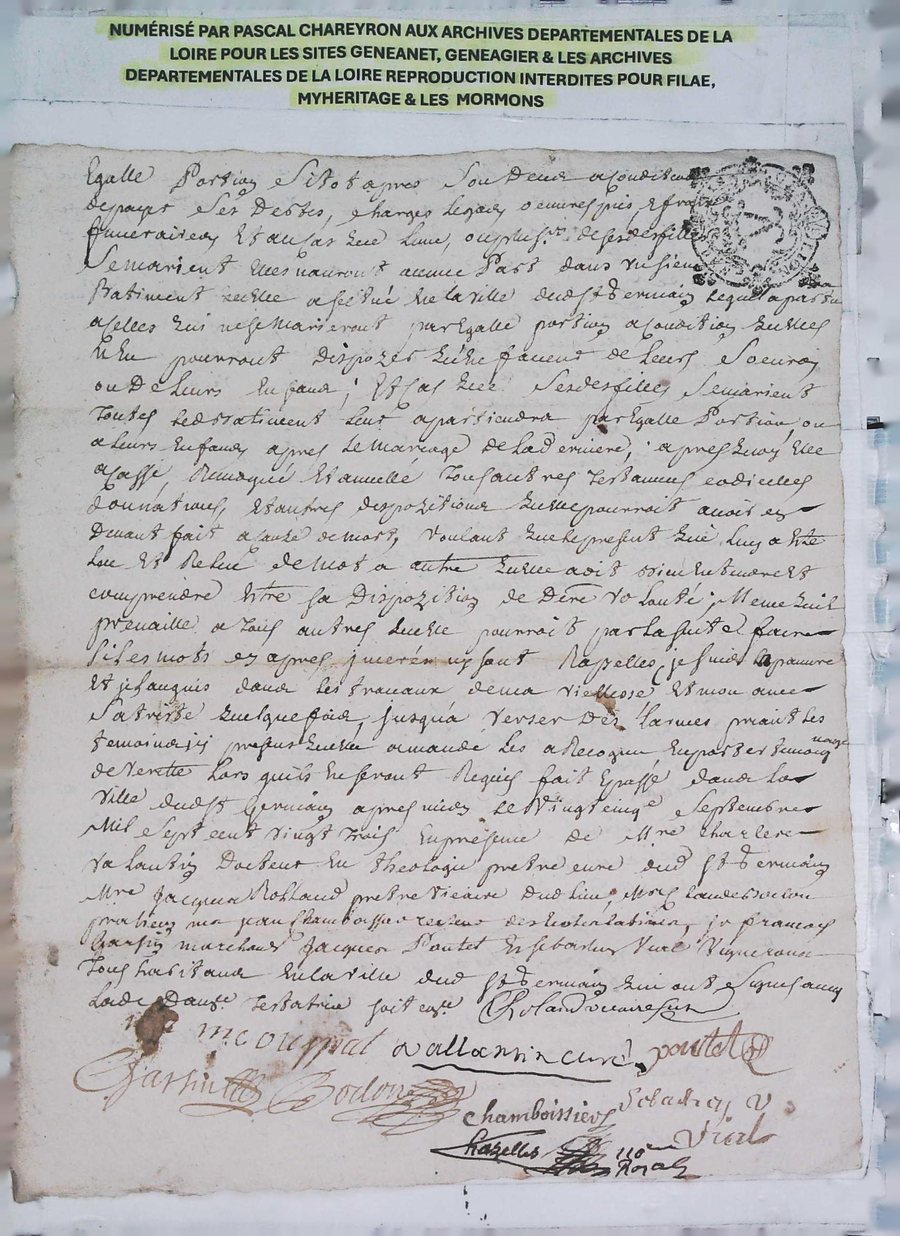 NUMÉRISÉ PAR PASCAL CHAREYRON AUX ARCHIVES DEPARTEMENTALES DE LA
LOIRE POUR LES SITES GENEANET, GENEAGIER & LES ARCHIVES
DEPARTEMENTALES DE LA LOIRE REPRODUCTION INTERDITES POUR FILAE,
MYHERITAGE & LES MORMONS
Egalle Portion sitot apres son Deces a condition
de payer ses Debtes, charges legats oeuvres pies, et frais
funeraires Et au cas que lune, ou plusrs desesdes filles
Se marient elles nauront aucune Part dans
Batiment quelle a situé en la ville dudt St Germain lequel
a celles qui ne se marieront par Egalle portion a condition quelles
nen pourront disposer quen faveur de leurs Soeurs
ou De Leurs Enfans; Et cas que sesdes filles Se marient
toutes ledt Batiment leur apartiendra par Egalle Portion, ou
a leurs Enfans apres le mariage de la derniere; apres quoy elle
a cassé, Revoqué Et annullé tous autres testamens codicilles
donnations, et autres dispozitions quelle pourroit avoir cy
Devant fait a cause de mort, voulant que le present qui luy a esté
Leu Et Releu de mot a autre quelle a dit bien Entendre Et
comprendre Estre sa Dispozition de Dere volonté; Meme quil
prevaille a tous autres quelle pourroit par la suite faire
si les mots cy apres ny sont Rapelles, je suis pauvre
Et je languis dans les travaux de ma viellesse Et mon ame
S'atriste quelque fois, jusqua verser Des larmes priant les
temoins icy presens quelle a mandé les a Recogneu En porter temoignage
de verité Lors quils En seront Requis fait Et passé dans la
ville dudt St Germain apres midy le vingt cinqe Septembre
Mil Sept cent vingt trois En présence de Mre Charles
Valantin Docteur En theologie pretre curé dud St Germain
Mre Jacques Rolland pretre vicaire dud lieu,
praticien me jean Chamboissier sr françois
Garsin marchand Jacques Poutet Et sebastien Vial Vignerons
Tous habitans En la ville dud St Germain qui ont Signé avec
Lade Dame testatrice soit
Roland vicaire
vallantin curé poutet
Garsin Bodon
Chamboissier Sebastien V
Vial
Chazelles
Royal